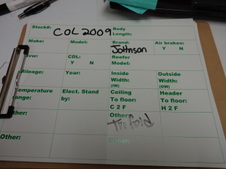 Stock#: COL2009 Body Length:
Make: Model: Brand: Johnson Air brakes? Y N
CDL: Y N Reefer Model:
Mileage: Year: Inside Width: Outside Width:
Temperature Range: Elect. Stand by: Ceiling To floor: C 2 F Header To floor: H 2 F
Other: Other:
Other: